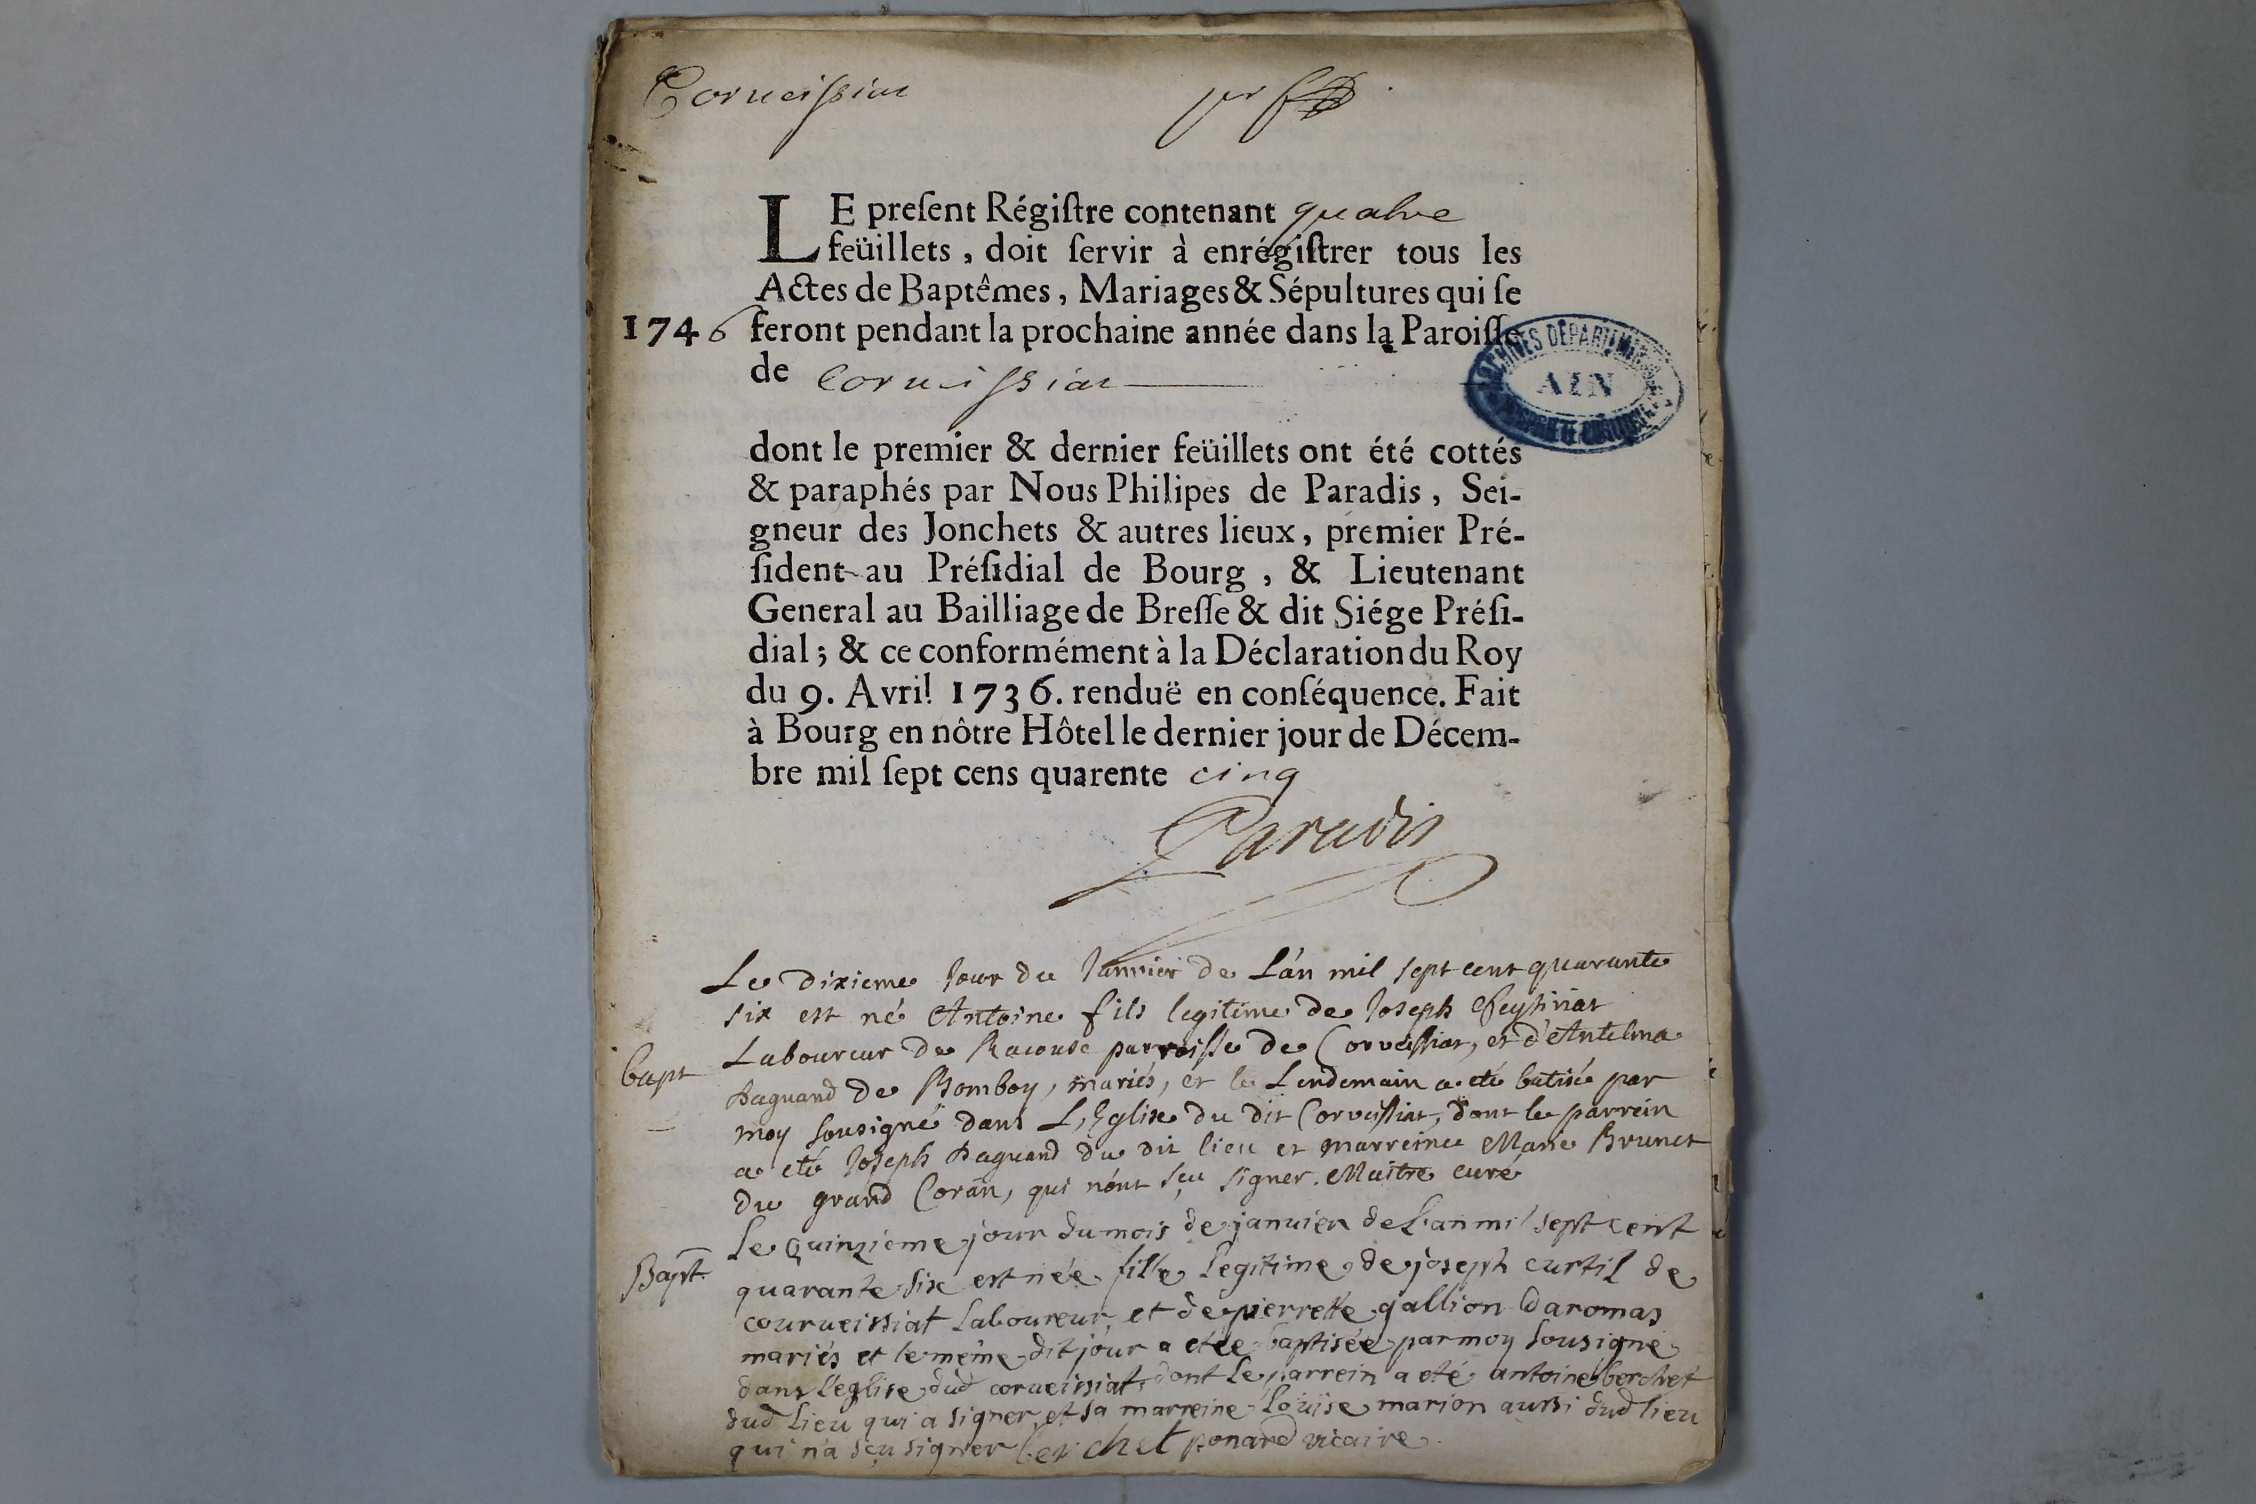 Corveissiat
LE present Régistre contenant quatre
feüillets, doit servir à enrégistrer tous les
Actes de Baptêmes, Mariages & Sépultures qui se
1746 feront pendant la prochaine année dans la Paroisse
de Corveissiat
ARCHIVES DÉPARTEMENTALES
AIN
dont le premier & dernier feüillets ont été cottés
& paraphés par Nous Philipes de Paradis, Sei-
gneur des Jonchets & autres lieux, premier Pré-
sident au Présidial de Bourg, & Lieutenant
General au Bailliage de Bresse & dit Siége Prési-
dial; & ce conformément à la Déclaration du Roy
du 9. Avril 1736. renduë en conséquence. Fait
à Bourg en nôtre Hôtel le dernier jour de Décem-
bre mil sept cens quarente cinq
Paradis
Le dixieme jour du Janvier de L'an mil sept cent quarante
six est né Antoine fils legitime de Joseph
bapt Laboureur de Racouse parroisse de Corveissiat, et d'Antelma
Daguand de Bomboy, mariés, et le Lendemain a eté batisée par
moy sousigné dans L'Eglise du dit Corveissiat, dont le parrein
a eté Joseph Daguand du dit lieu et marreine Marie Brunet
du grand Coran, qui nont sçu signer. Maitre curé
Le quinzieme jour du mois de janvier de L'an mil sept cent
Bapt. quarante six est née fille legitime de joseph curtil de
courveissiat Laboureur, et de pierrette gallion daromas
mariés et le même dit jour a etée baptisée par moy sousigné
dans l'eglise dud corveissiat, dont le parrein a eté antoine berchet
dud Lieu qui a signer et sa marreine Loüise marion aussi dud lieu
qui n'a sçu signer berchet ponard vicaire